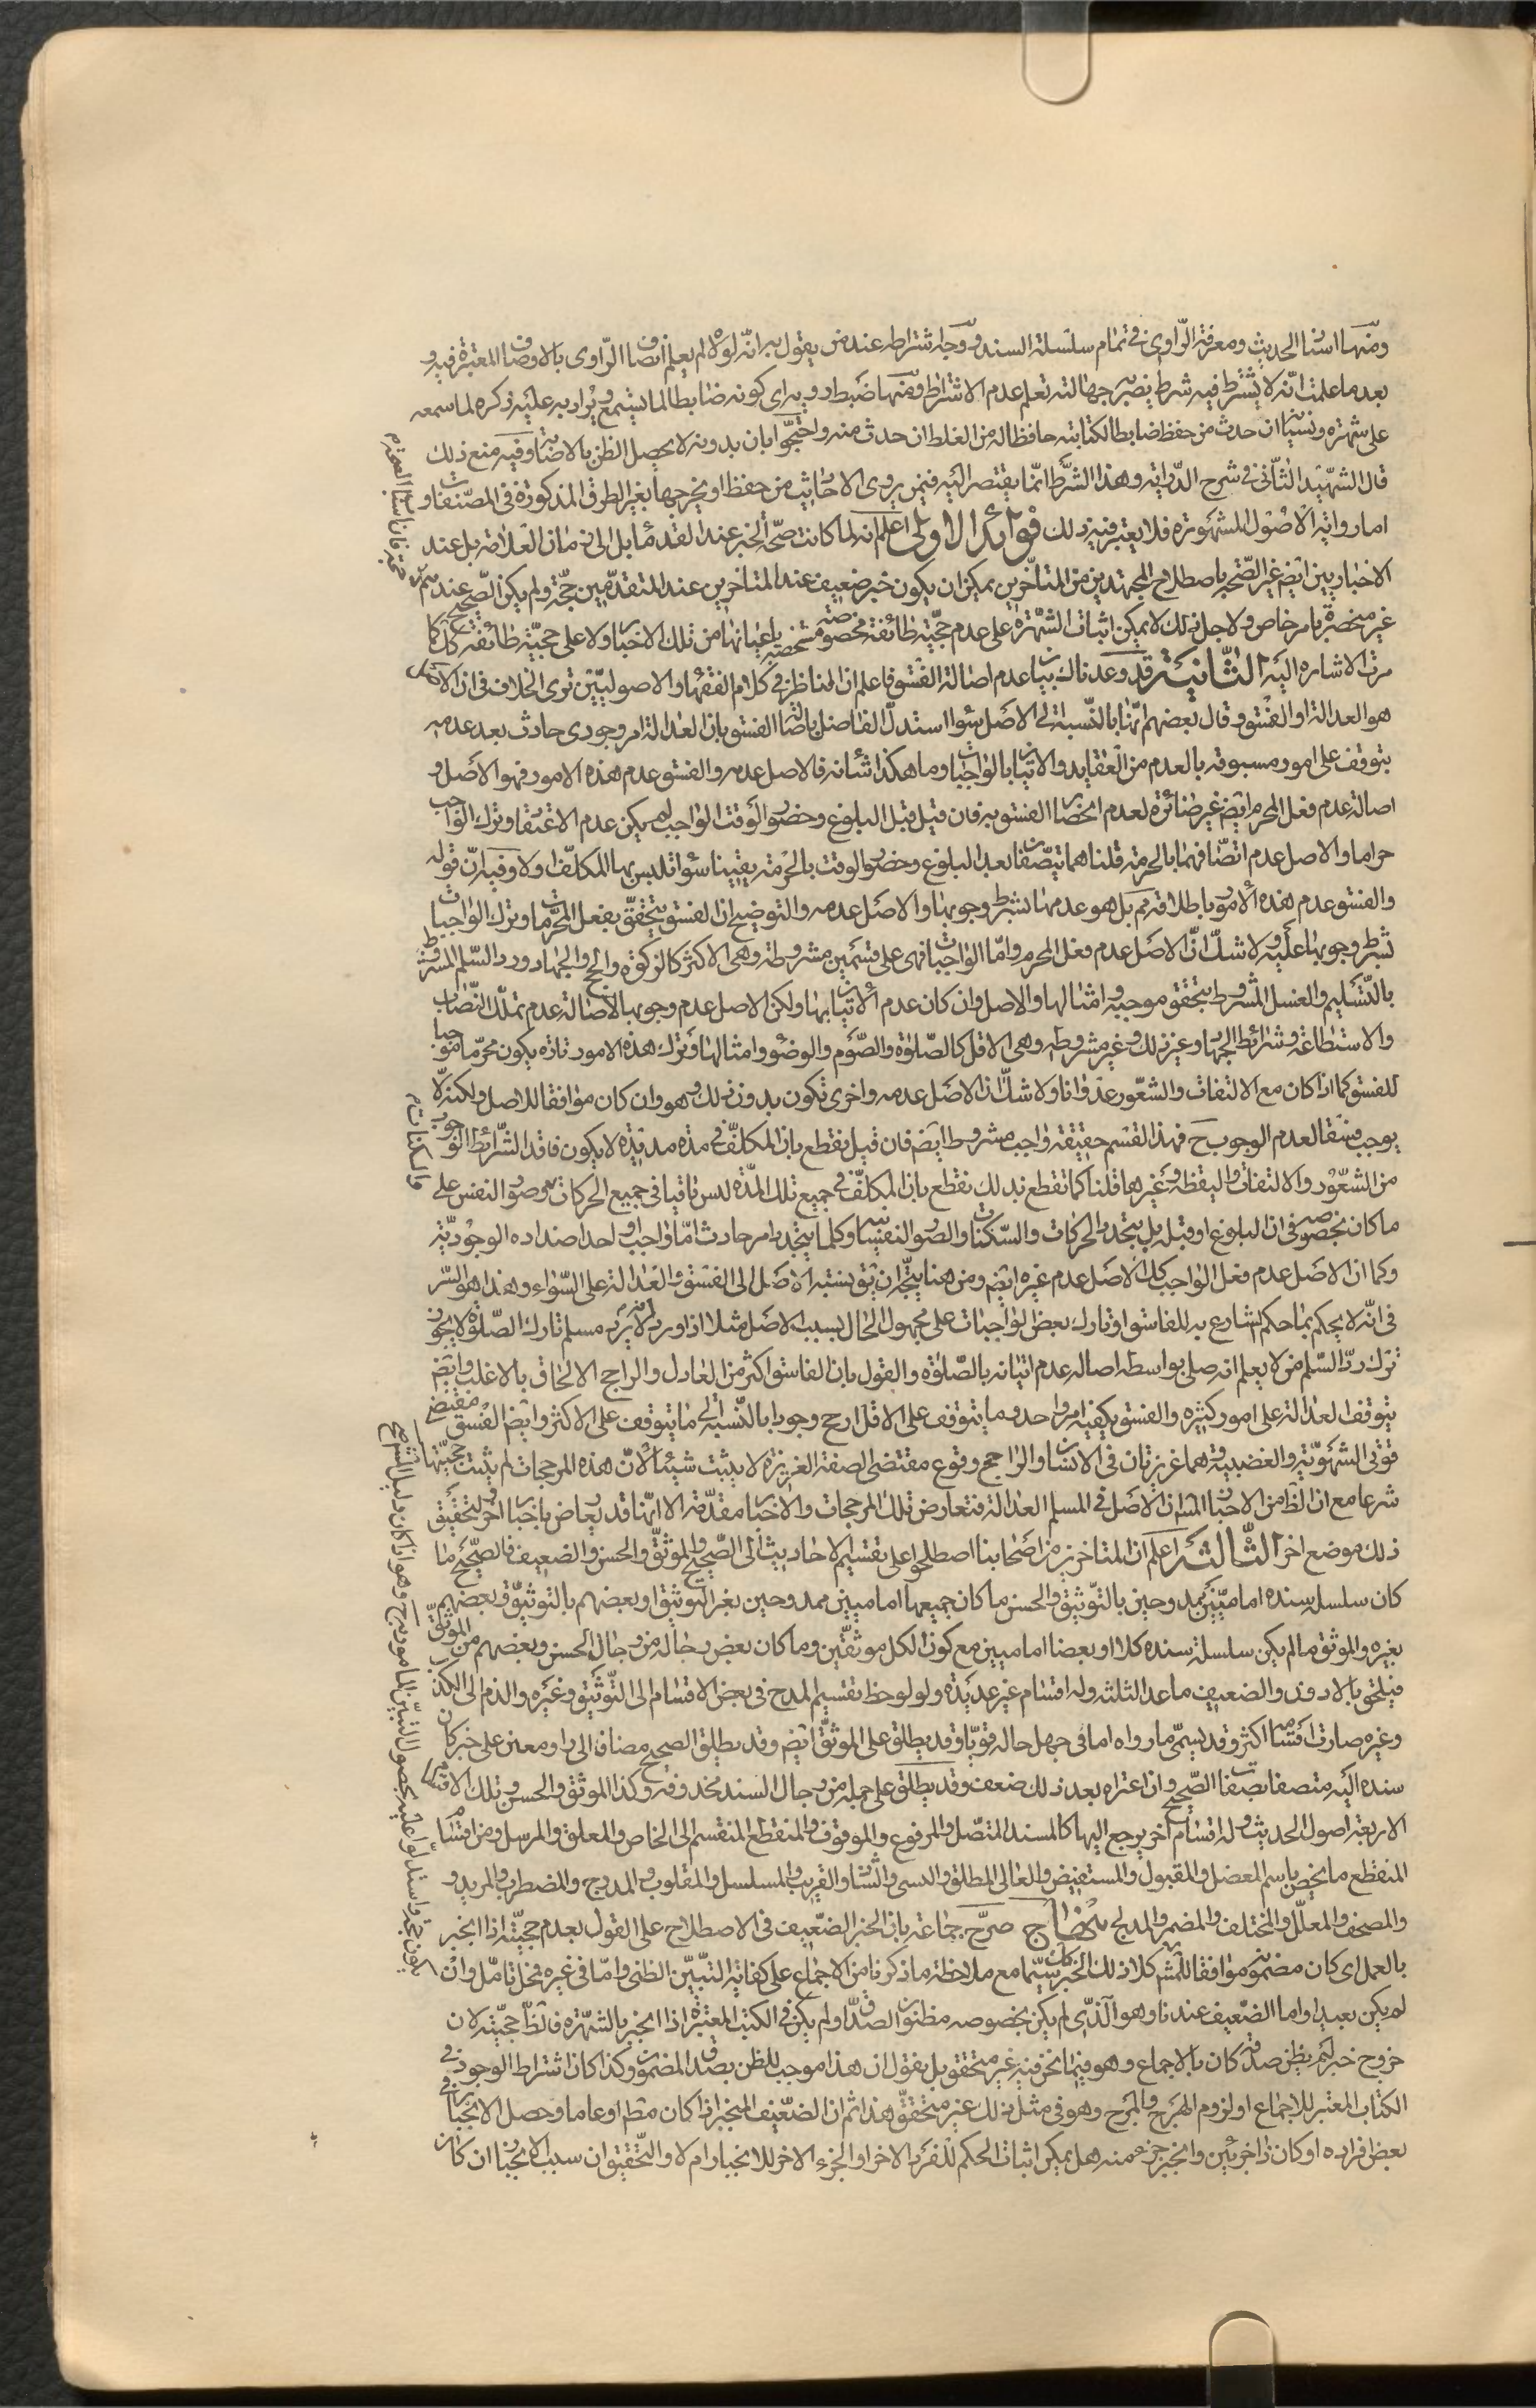 ومنها اسناد الحديث ومعرفة الراوى فى تمام سلسلة السند ووجه اشتراطه عند من يقول به انه لولاه لم يعلم اتصاف الراوى بالاوصاف المعتبرة فيه و
بعد ما علمت انه لا يشترط فيه شرط يضر جهالته تعلم عدم الاشتراط ومنها ضبط راويه اى كونه ضابطا لما يستمع ويراد به غلبة ذكره لما سمعه
على سهوه ونسيانه ان حدث من حفظ ضابطا لكتابته حافظا له من الغلط ان حدث منه واحتجوا بان بدونه لا يحصل الظن بالاخبار وفيه منع ذلك
قال الشهيد الثانى فى شرح الدراية وهذا الشرط انما يقتصر اليه فيمن يروى الاحاديث من حفظ او يخرجها بغير الطرق المذكورة فى المصنفات و
اما رواية الاصول المشهورة فلا يعتبر فيه ذلك فوائد الاولى اعلم انه لما كانت صحة الخبر عند القدماء بل الى زمان العلامة بل عند
الاخباريين ايضم غير الصحة باصطلاح المجتهدين من المتأخرين يمكن ان يكون خبر ضعيف عند المتاخرين عند المتقدمين حجة ولم يكن الصحيح عندهم
غير منحصرة بامر خاص ولاجل ذلك لا يمكن اثبات الشهرة على عدم حجية طائفة مخصوصة مشخصة باعيانها من تلك الاخبار ولا على حجية طائفة كذلك كما
مرت الاشارة اليه الثانية قد وعدناك بيان عدم اصالة الفسق فاعلم ان المناظر فى كلام الفقهاء والاصوليين ترى الخلاف فى ان الاصل
هو العدالة او الفسق وقال بعضهم انهما بالنسبة الى الاصل سواء استدل الفاضل باصالة الفسق بان العدالة امر وجودى حادث بعد عدمه
يتوقف على امور مسبوقة بالعدم من العقايد والاتيان بالواجبات وما هكذا شانه فالاصل عدمه والفسق عدم هذه الامور فهو الاصل و
اصالة عدم فعل المحرم ايضم غير ضائرة لعدم انحصار الفسق به فان قيل قبل البلوغ وحضور الوقت الواجب لم يكن عدم الاعتقاد وترك الواجب
حراما والاصل عدم اتصافهما بالحرمة قلنا هما يتصفان بعد البلوغ وحضور الوقت بالحرمة يقينا سواء تلبس بها المكلف اولا وفيه ان قوله
والفسق عدم هذه الامور باطلاقه تم بل هو عدمها بشرط وجوبها والاصل عدمه والتوضيح ان الفسق يتحقق بفعل المحرمات وترك الواجبات
بشرط وجوبها عليه ولا شك ان الاصل عدم فعل المحرم واما الواجبات فهى على قسمين مشروطة وهى الاكثر كالزكوة والحج والجهاد ورد السلم المشروط
بالتسليم والغسل المشروط بتحقق موجبه وامثالها والاصل وان كان عدم الاتيان بها ولكن الاصل عدم وجوبها لاصالة عدم تملك النصاب
والاستطاعة وشرائط الجهاد وغير ذلك وغير مشروطة وهى الاقل كالصلوة والصوم والوضوء وامثالها وترك هذه الامور تارة يكون محرما موجبا
للفسق كما اذا كان مع الالتفات والشعور عدوانا ولا شك ان الاصل عدمه واخرى تكون بدون ذلك وهو وان كان موافقا للاصل ولكنه لا
يوجب فسقا لعدم الوجوب ح فهذا القسم حقيقة واجب مشروط ايضم فان قيل نقطع بان المكلف فى مدة مديدة لا يكون فاقدا لشرائط الوجوب
من الشعور والالتفات واليقظة وغيرهما قلنا كما نقطع بذلك نقطع بان المكلف فى جميع تلك المدة ليس باقيا فى جميع الحركات والسكنات وصور النفس على
ما كان بخصوصه فى ان البلوغ او قبله بل يتجدد الحركات والسكنات والصور النفسانية وكلما يتجدد امر حادث اما واجب او احد اضداده الوجودية
وكما ان الاصل عدم فعل الواجب كك الاصل عدم غيره ايضم ومن هنا يتجه ان يق نسبة الاصل الى الفسق والعدالة على السواء وهذا هو السر
فى انه لا يحكم بما حكم الشارع به للفاسق او تارك بعض الواجبات على مجهول الحال بسبب الاصل مثلا اذا ورد لا يرد مسلم تارك الصلوة لا يجوز
ترك رد السلم من لا يعلم انه صلى بواسطة اصالة عدم اتيانه بالصلوة والقول بان الفاسق اكثر من العادل والراجح الالحاق بالاغلب وايضم
يتوقف العدالة على امور كثيرة والفسق يكفيه امر واحد وما يتوقف على الاقل ارجح وجودا بالنسبة الى ما يتوقف على الاكثر وايضم الفسق مقتضى
قوتى الشهوية والغضبية وهما غريزتان فى الانسان والراجح وقوع مقتضى الصفة الغريزة لا يثبت شيئا لان هذه المرجحات لم يثبت حجيتها
شرعا مع ان الظ من الاخبار ان الاصل فى المسلم العدالة فتعارض تلك المرجحات والاخبار مقدمة الا انها قد يعارض باخبار اخر ولتحقيق
ذلك موضع اخر الثالثة اعلم ان المتاخرين من اصحابنا اصطلحوا على تقسيم الاحاديث الى الصحيح والموثق والحسن والضعيف فالصحيح ما
كان سلسلة سنده اماميين ممدوحين بالتوثيق والحسن ما كان جميعها اماميين ممدوحين بغير التوثيق او بعضهم بالتوثيق وبعضهم
بغيره والموثق ما لم يكن سلسلة سنده كلا او بعضا اماميين مع كون الكل موثقين وما كان بعض رجاله من رجال الحسن وبعضهم من الموثق
فيلحق بالادون والضعيف ما عدا الثلثة وله اقسام غير عديدة ولو لوحظ تقسيم المدح فى بعض الاقسام الى التوثيق وغيره والذم الى الكذب
وغيره صارت اقسامه اكثر وقد يسمى ما رواه امامى جهل حاله قويا وقد يطلق على الموثق ايضم وقد يطلق الصحيح مضافا الى راو معين على خبر كان
سنده اليه متصفا بصفات الصحيح وان اعتراه بعد ذلك ضعف وقد يطلق على جملة من رجال السند محذوفة وكذا الموثق والحسن وتلك الاقسام
الاربعة اصول الحديث وله اقسام اخر يرجع اليها كالمسند المتصل والمرفوع والموقوف والمنقطع المنقسم الى الخاص والمعلق والمرسل ومن اقسام
المنقطع ما يخص باسم المعضل والمقبول والمستفيض والعالى المطلق والنسبى والشاذ والغريب والمسلسل والمقلوب والمدرج والمضطرب والمزيد و
والمصحف والمعلل والمختلف والمضمر والمدلج منهاج صرح جماعة بان الخبر الضعيف فى الاصطلاح على القول بعدم حجيته اذا انجبر
بالعمل اى كان مضمونه موافقا للمشهور كلا ذلك الخبر كان سيما مع ملاحظة ما ذكرنا من الاجماع على كفاية التبين الظنى واما فى غيره فمحل تامل وان
لم يكن بعيدا واما الضعيف عندنا وهو الذى لم يكن بخصوصه مظنون الصدق او لم يكن فى الكتب المعتبرة اذا انجبر بالشهرة فالظ حجيته لان
خروج خبر لم يظن صدقه كان بالاجماع وهو فيما نحن فيه غير متحقق بل يقول ان هذا موجب للظن بصدق المضمون وكذا كان اشتراط الوجود فى
الكتاب المعتبر للاجماع او لزوم الهرج والمرج وهو فى مثل ذلك غير متحقق هذا ثم ان الضعيف المنجبر اذا كان مطم او عاما وحصل الانجبار فى
بعض افراده او كان ذا جزئين وانجبر جزء منه هل يمكن اثبات الحكم للفرد الاخر او الجزء الاخر للانجبار ام لا والتحقيق ان سبب الانجبار ان كان